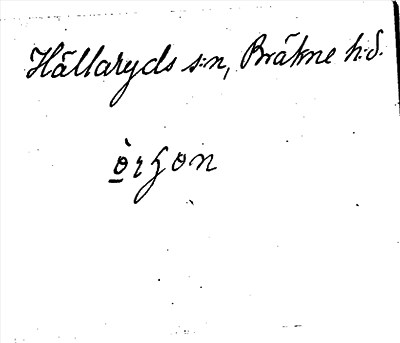 Hällaryds s:n, Bräkne h:d.
ò̲rgon